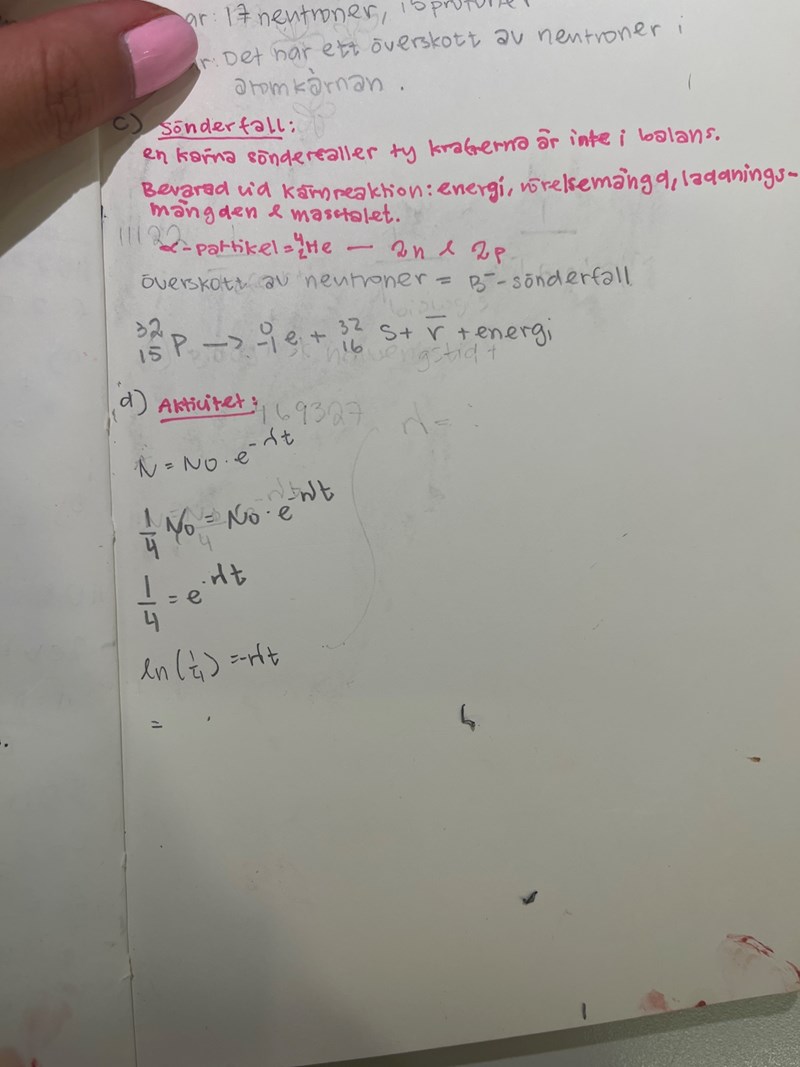 ar: 17 neutroner, 15 protoner
r: Det har ett överskott av neutroner i
atomkärnan.
c) Sönderfall:
en kärna sönderfaller ty krafterna är inte i balans.
Bevarad vid kärnreaktion: energi, rörelsemängd, laddnings-
mängden & masstalet.
α-partikel = ⁴₂He — 2n & 2p
överskott av neutroner = β⁻-sönderfall
³²₁₅P → ⁰₋₁e + ³²₁₆S + v̅ + energi
d) Aktivitet:
169327
N = N0 · e^-λt
1/4 N0 = N0 · e^-λt
1/4 = e^-λt
ln(1/4) = -λt
=